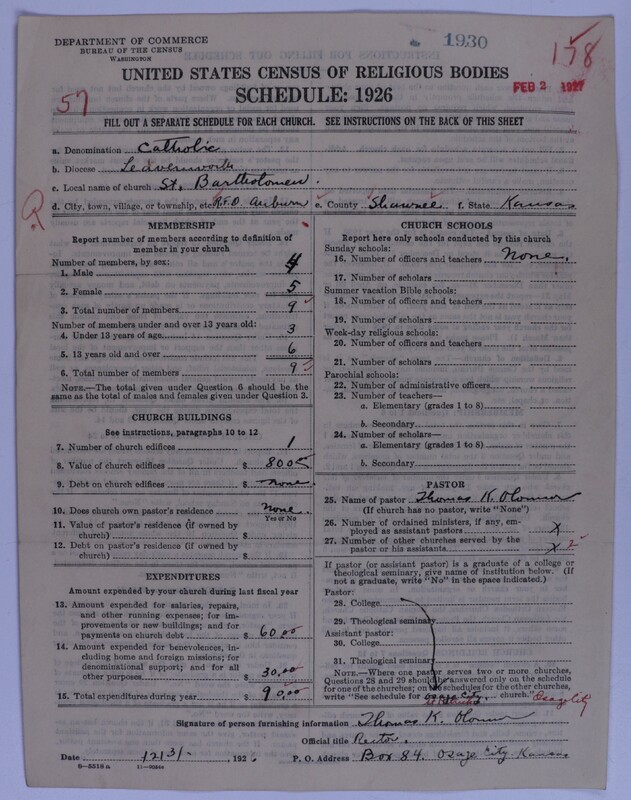 DEPARTMENT OF COMMERCE
BUREAU OF THE CENSUS
WASHINGTON
1930
178
FEB 2 1927
UNITED STATES CENSUS OF RELIGIOUS BODIES
SCHEDULE: 1926
57
FILL OUT A SEPARATE SCHEDULE FOR EACH CHURCH. SEE INSTRUCTIONS ON THE BACK OF THIS SHEET
a. Denomination Catholic
b. Diocese Leavenworth
c. Local name of church St. Bartholomew
d. City, town, village, or township, etc. R.F.D. Auburn e. County Shawnee f. State Kansas
MEMBERSHIP
Report number of members according to definition of
member in your church
Number of members, by sex:
1. Male 4
2. Female 5
3. Total number of members 9
Number of members under and over 13 years old:
4. Under 13 years of age 3
5. 13 years old and over 6
6. Total number of members 9
NOTE.—The total given under Question 6 should be
same as the total of males and females given under Question 3.
CHURCH BUILDINGS
See instructions, paragraphs 10 to 12
7. Number of church edifices 1
8. Value of church edifices $
9. Debt on church edifices $ none
10. Does church own pastor's residence none.
Yes or No
11. Value of pastor's residence (if owned by
church) $
12. Debt on pastor's residence (if owned by
church) $
EXPENDITURES
Amount expended by your church during last fiscal year
13. Amount expended for salaries, repairs,
and other running expenses; for im-
provements or new buildings; and for
payments on church debt $ 60.00
14. Amount expended for benevolences, in-
cluding home and foreign missions; for
denominational support; and for all
other purposes $ 30.00
15. Total expenditures during year $ 90.00
CHURCH SCHOOLS
Report here only schools conducted by this church
Sunday schools:
16. Number of officers and teachers None.
17. Number of scholars
Summer vacation Bible schools:
18. Number of officers and teachers
19. Number of scholars
Week-day religious schools:
20. Number of officers and teachers
21. Number of scholars
Parochial schools:
22. Number of administrative officers
23. Number of teachers—
a. Elementary (grades 1 to 8)
b. Secondary
24. Number of scholars—
a. Elementary (grades 1 to 8)
b. Secondary
PASTOR
25. Name of pastor Thomas K. O'Connor
(If church has no pastor, write "None")
26. Number of ordained ministers, if any, em-
ployed as assistant pastors x
27. Number of other churches served by the
pastor or his assistants x 2
If pastor (or assistant pastor) is a graduate of a college or
theological seminary, give name of institution below. (If
not a graduate, write "No" in the space indicated.)
Pastor:
28. College
29. Theological seminary
Assistant pastor:
30. College
31. Theological seminary
NOTE.—Where one pastor serves two or more churches,
Questions 28 and 29 should be answered only on the schedule
for one of the churches; on the schedules for the other churches,
write "See schedule for Osage City church." Osage City
Signature of person furnishing information Thomas K. O'Connor
Official title Rector.
Date 12/31 , 1926 P. O. Address Box 84. Osage City. Kansas
8—5518 a 11—9084a